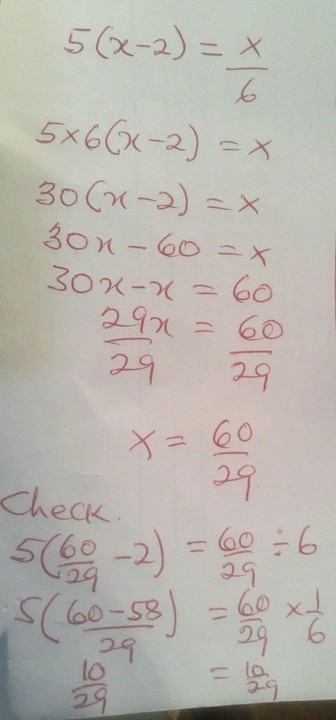 5(x-2) = x/6
5×6(x-2) = x
30(x-2) = x
30x - 60 = x
30x-x = 60
29x/29 = 60/29
x = 60/29
Check.
5(60/29 - 2) = 60/29 ÷ 6
5(60-58/29) = 60/29 × 1/6
10/29 = 10/29